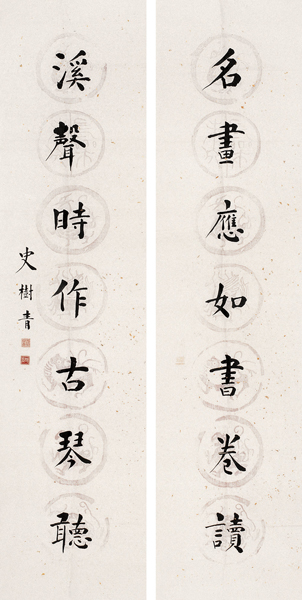 名畫應如書卷讀
溪聲時作古琴聽
史樹青